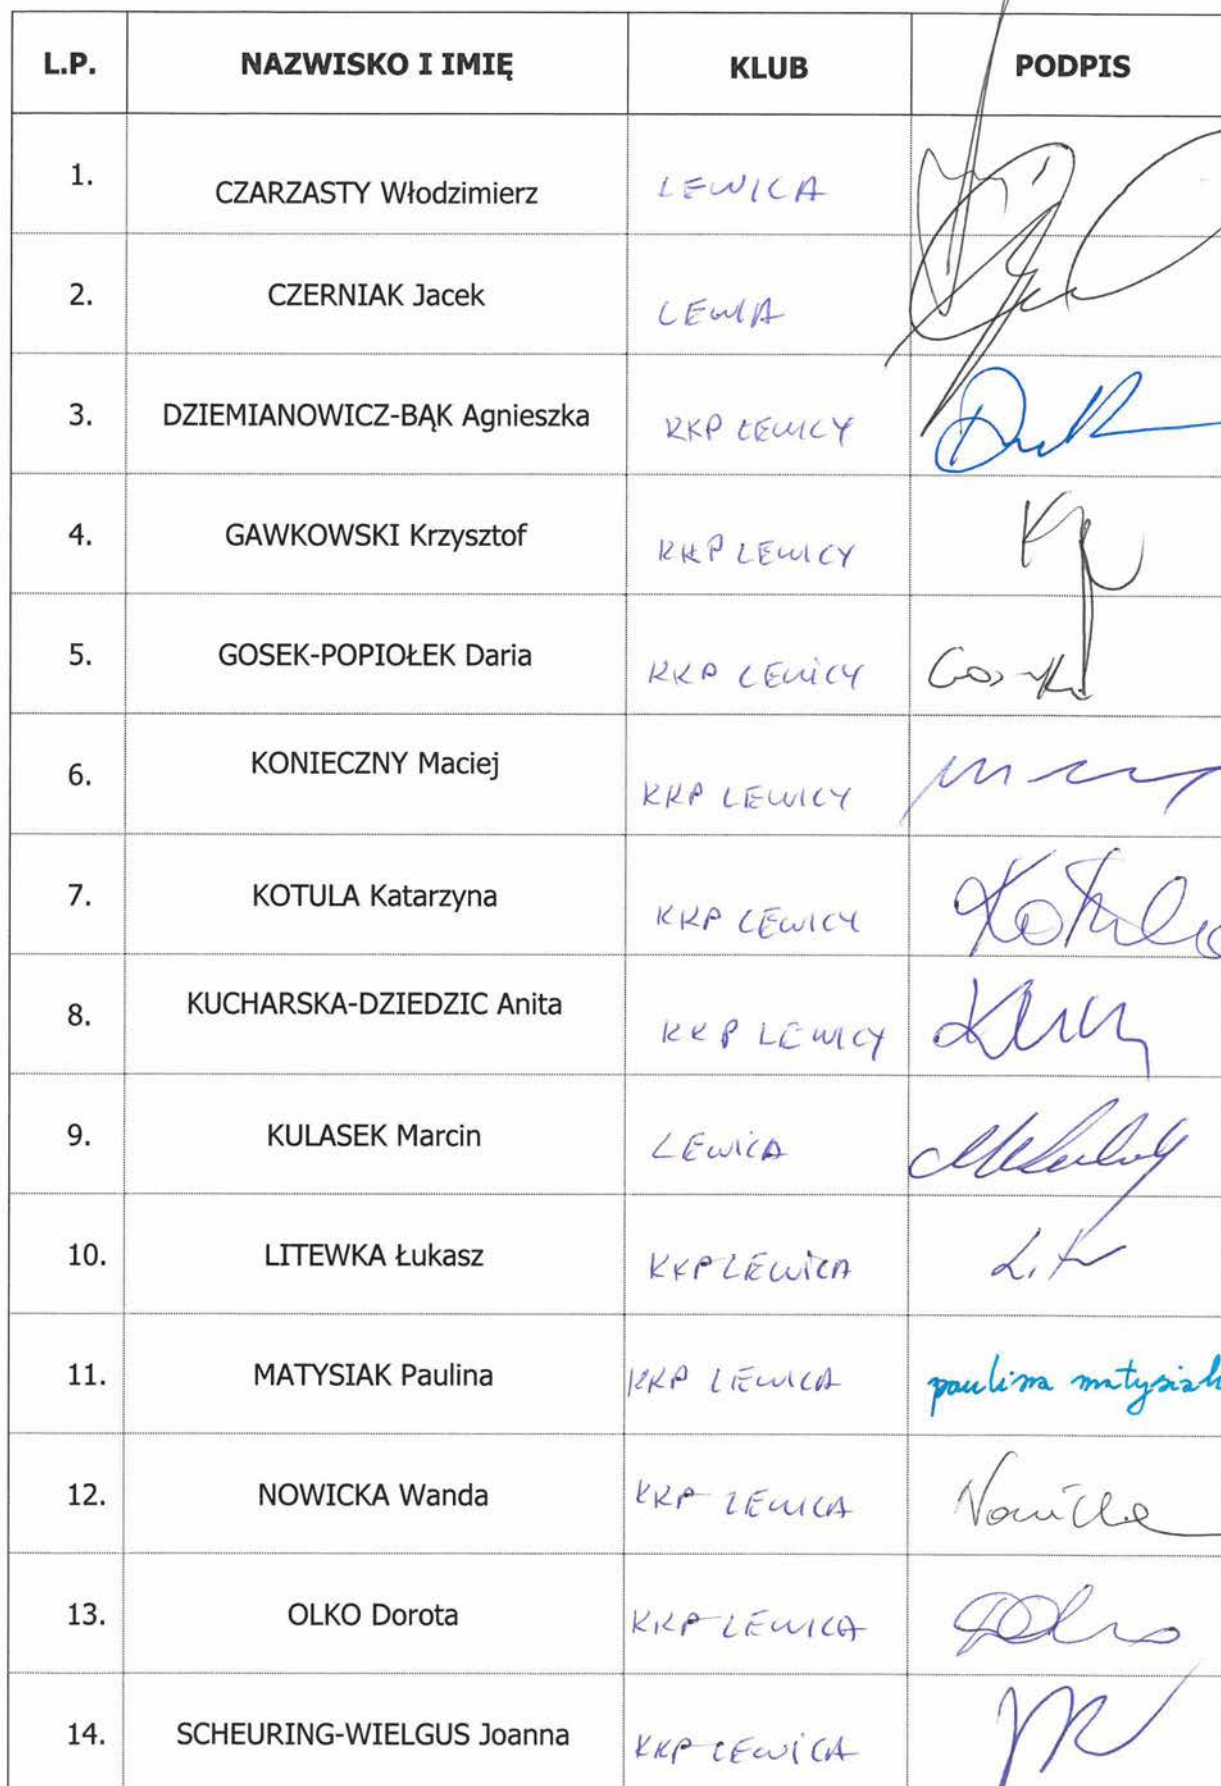 L.P. NAZWISKO I IMIĘ KLUB PODPIS
1. CZARZASTY Włodzimierz LEWICA
2. CZERNIAK Jacek LEWIA
3. DZIEMIANOWICZ-BĄK Agnieszka KKP LEWICY
4. GAWKOWSKI Krzysztof KKP LEWICY
5. GOSEK-POPIOŁEK Daria KKP LEWICY
6. KONIECZNY Maciej KKP LEWICY
7. KOTULA Katarzyna KKP LEWICY Kotula
8. KUCHARSKA-DZIEDZIC Anita KKP LEWICY
9. KULASEK Marcin LEWICA
10. LITEWKA Łukasz KKP LEWICA
11. MATYSIAK Paulina KKP LEWICA paulina matysiak
12. NOWICKA Wanda KKP LEWICA Nowicka
13. OLKO Dorota KKP LEWICA
14. SCHEURING-WIELGUS Joanna KKP LEWICA